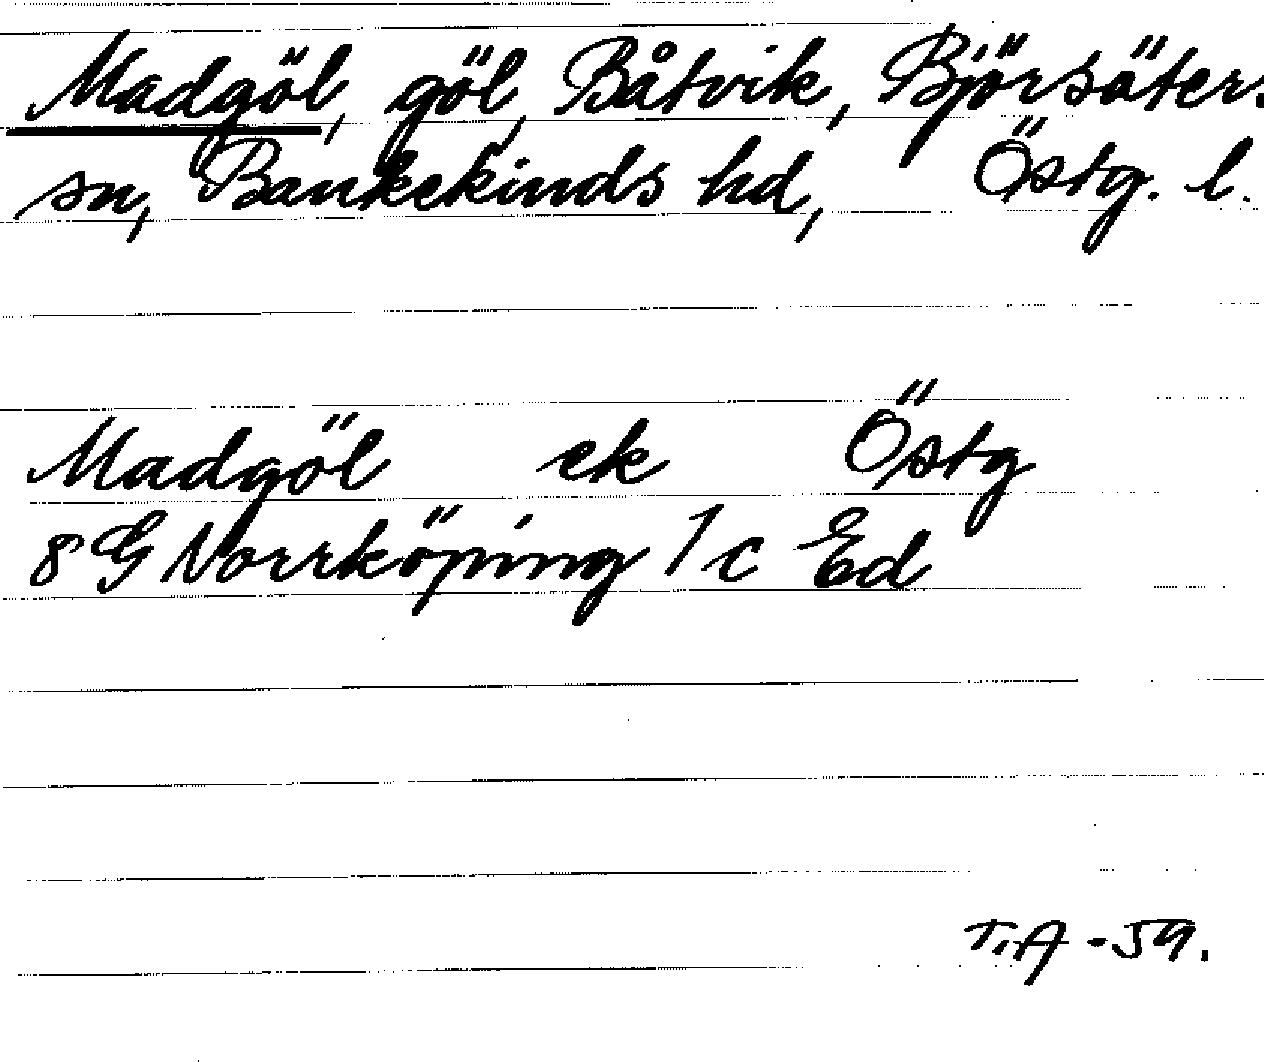 Madgöl, göl, Båtvik, Björsäters
sn, Bankekinds hd, Östg. l.
Madgöl ek Östg
8 G Norrköping 1 c Ed
T.A -59.